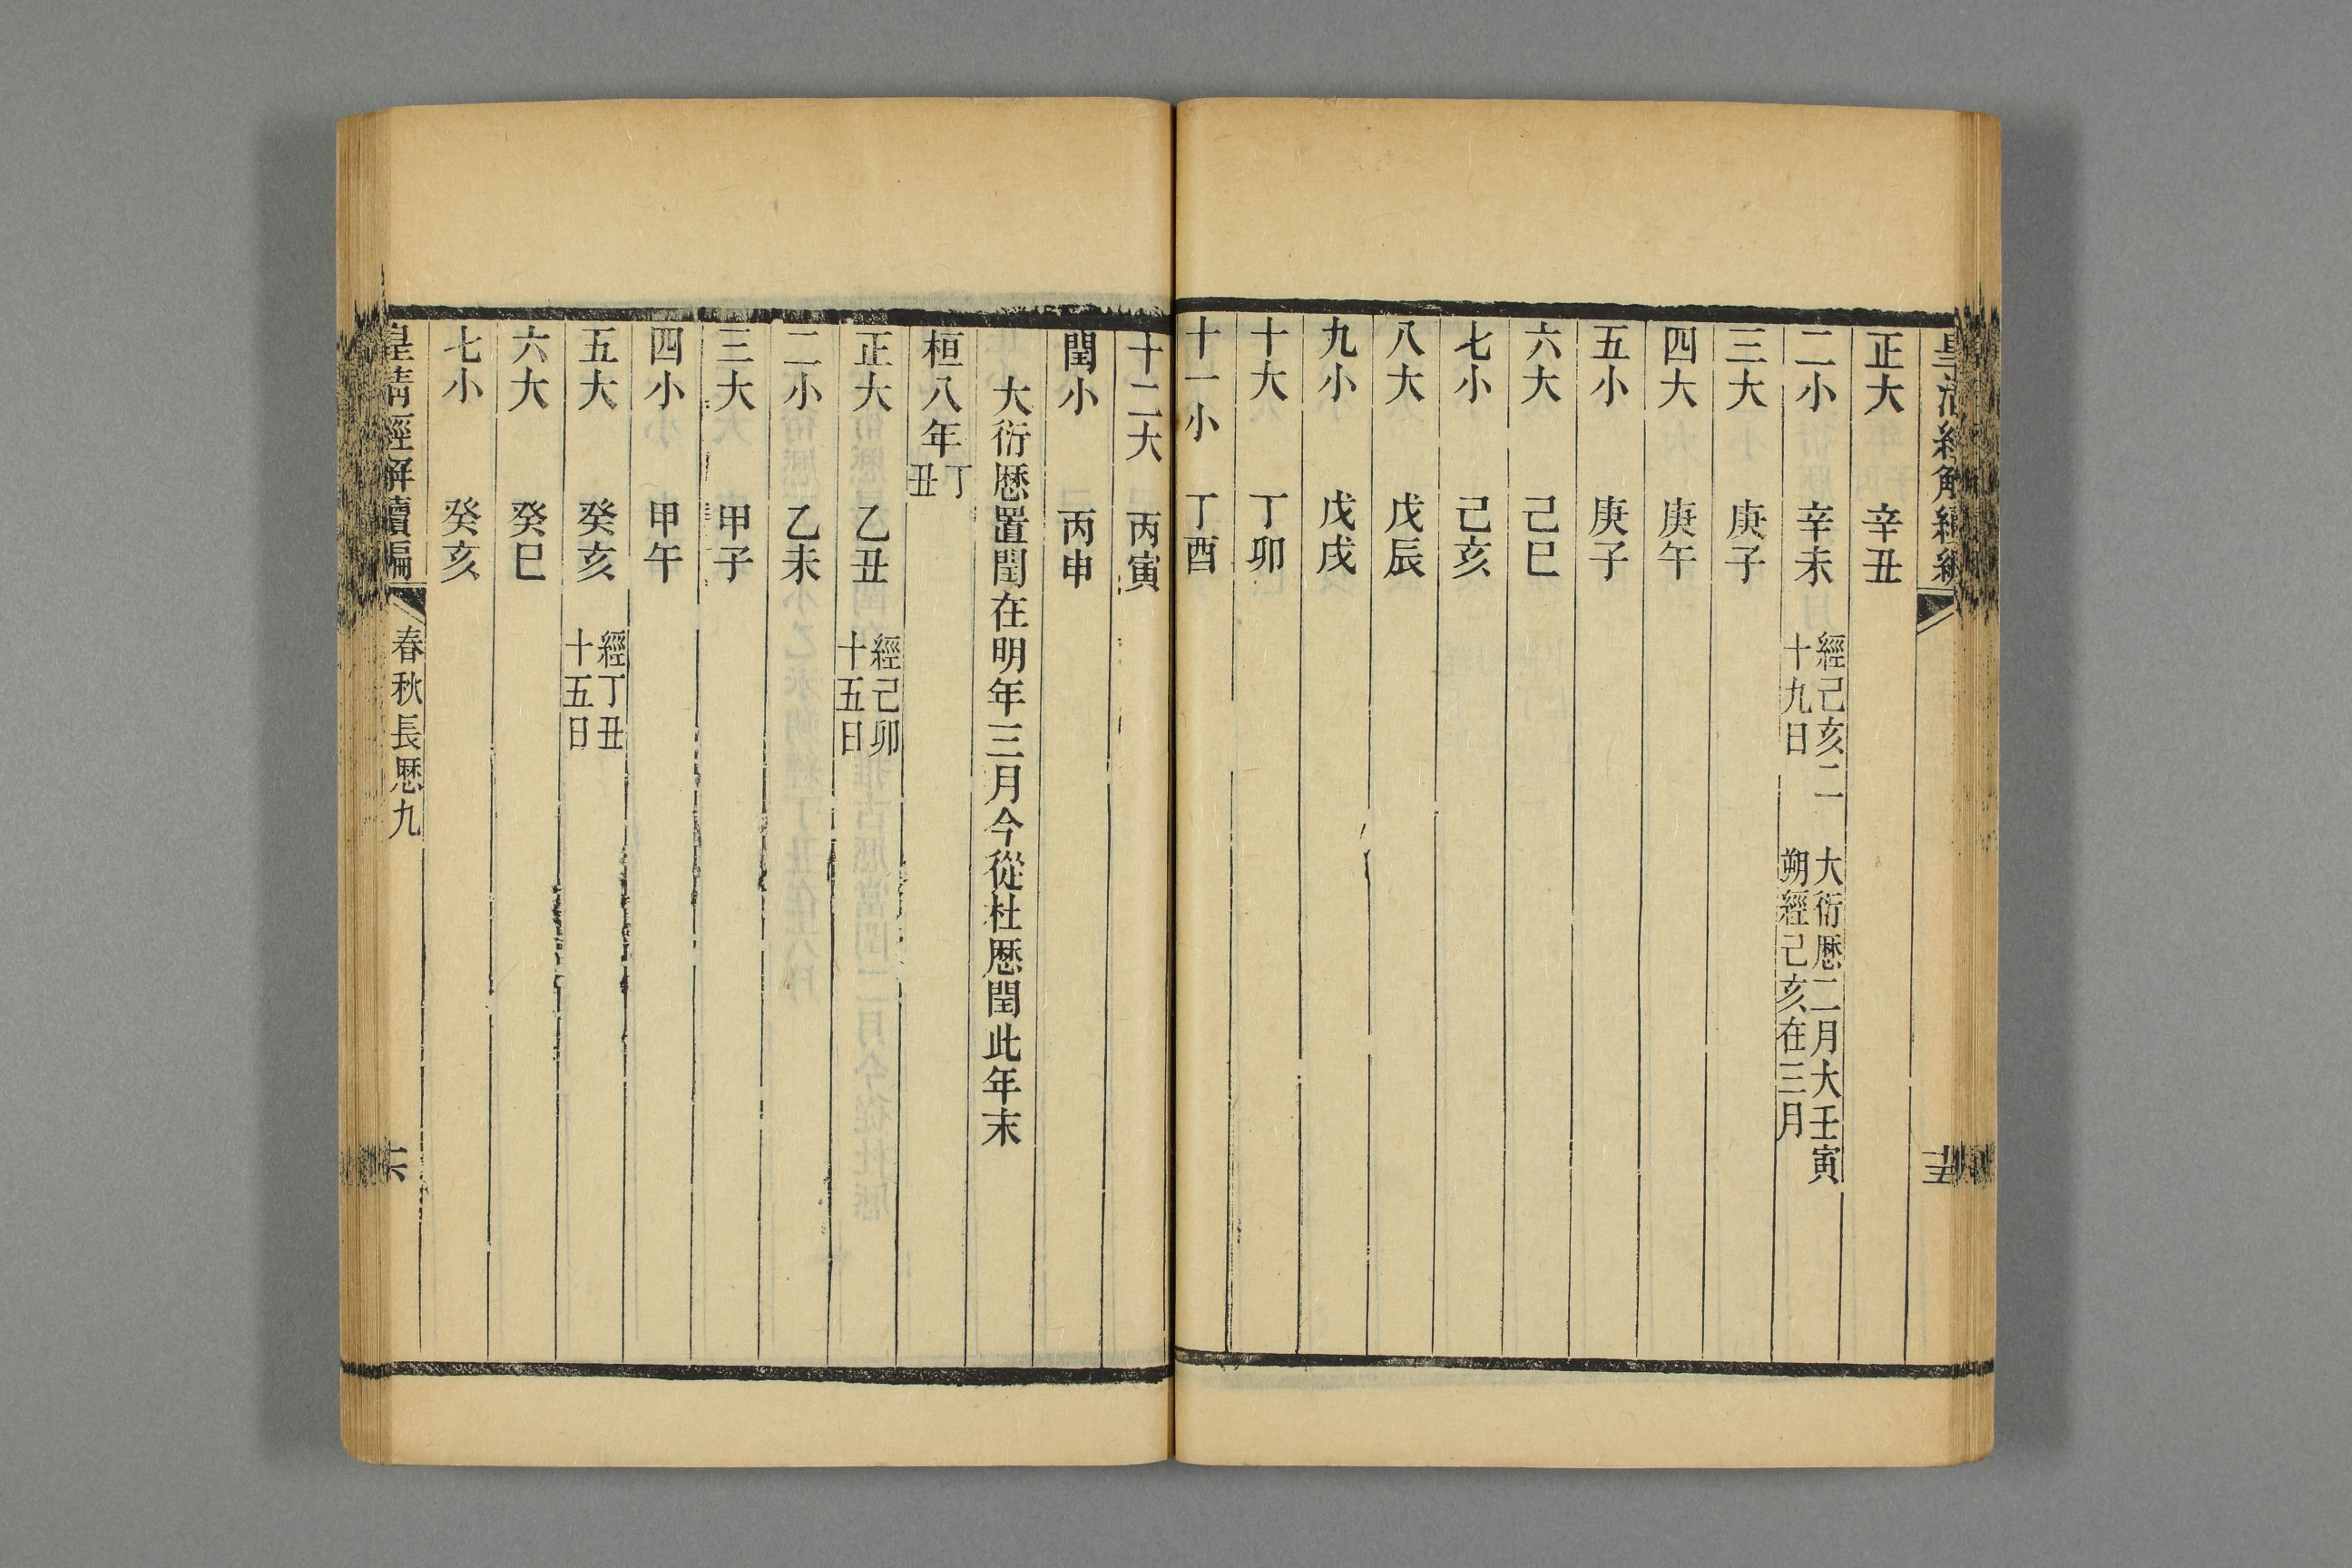 正大　辛丑
二小　辛未　經己亥二十九日　大衍厯二月大壬寅朔經己亥在三月
三大　庚子
四大　庚午
五小　庚子
六大　己巳
七小　己亥
八大　戊辰
九小　戊戌
十大　丁卯
十一小　丁酉
十二大　丙寅
閏小　丙申
大衍厯置閏在明年三月今從杜厯閏此年末
桓八年丁丑
正大　乙丑　經己卯十五日
二小　乙未
三大　甲子
四小　甲午
五大　癸亥　經丁丑十五日
六大　癸巳
七小　癸亥
皇清經解續編　春秋長厯九